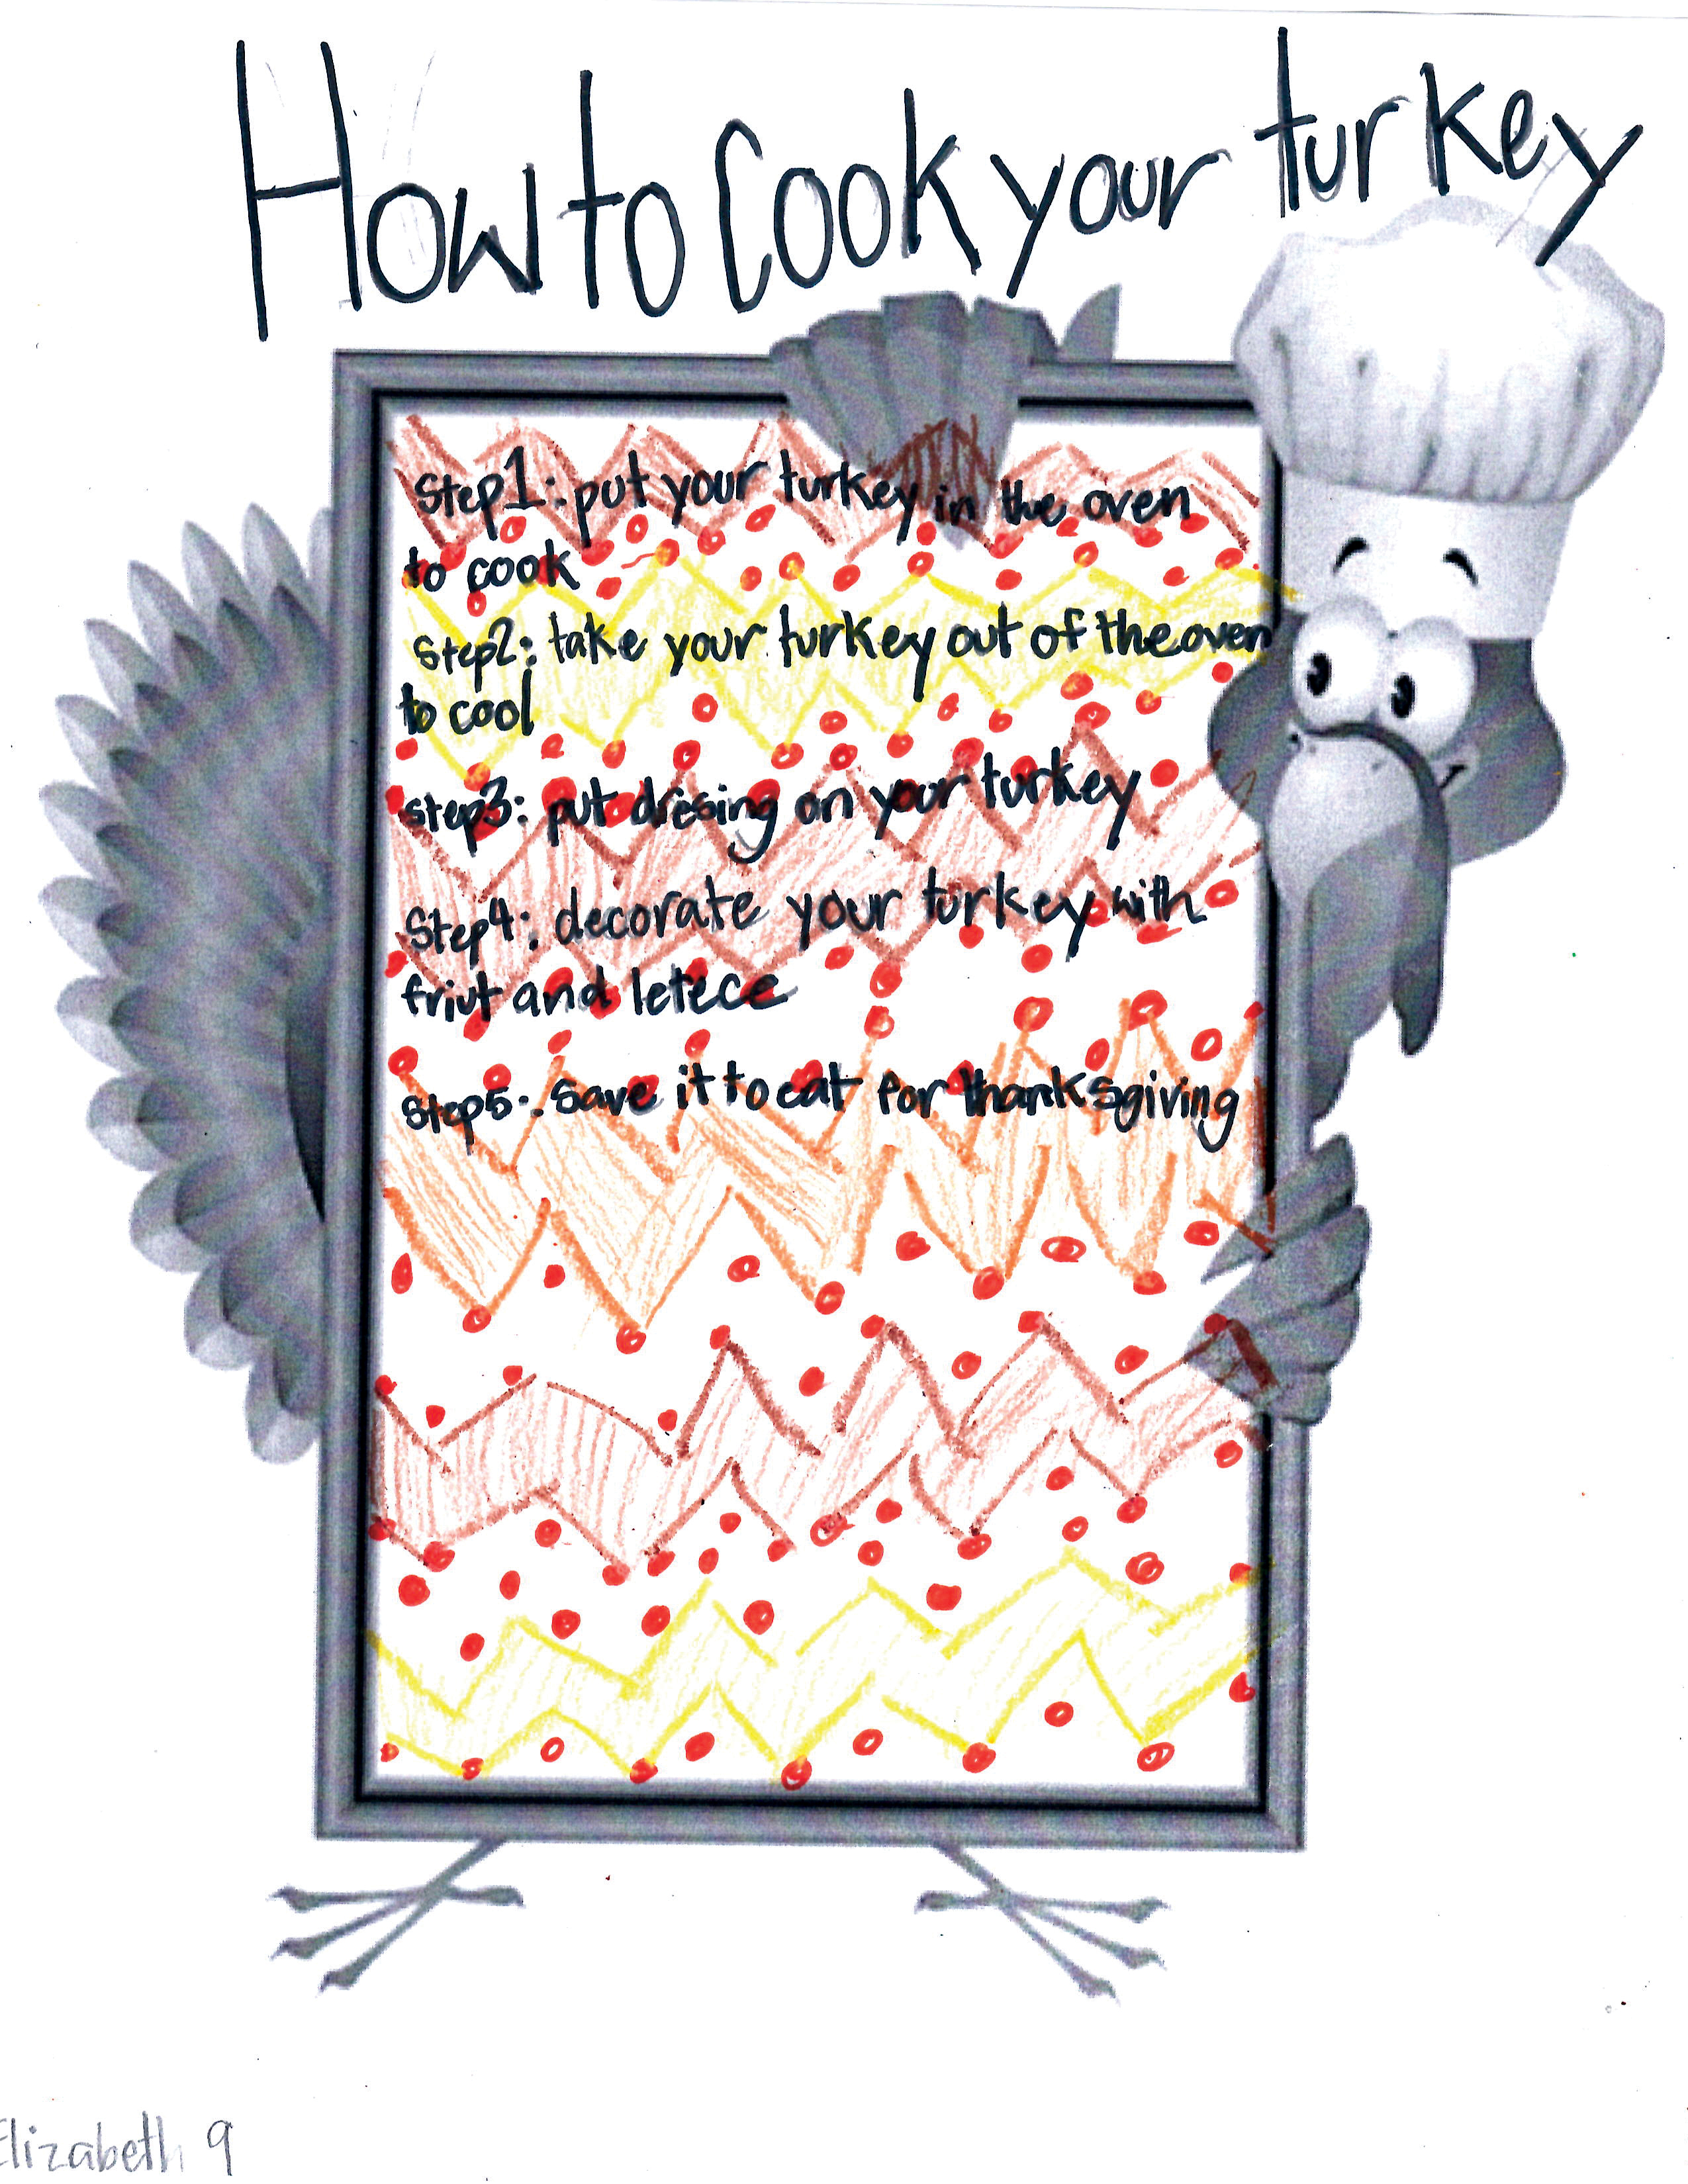 How to Cook your turkey
Step1: put your turkey in the oven
to cook
Step2: take your turkey out of the oven
to cool
Step3: put dresing on your turkey
Step4: decorate your turkey with
friut and letece
Step5: save it to eat for thanksgiving
Elizabeth 9